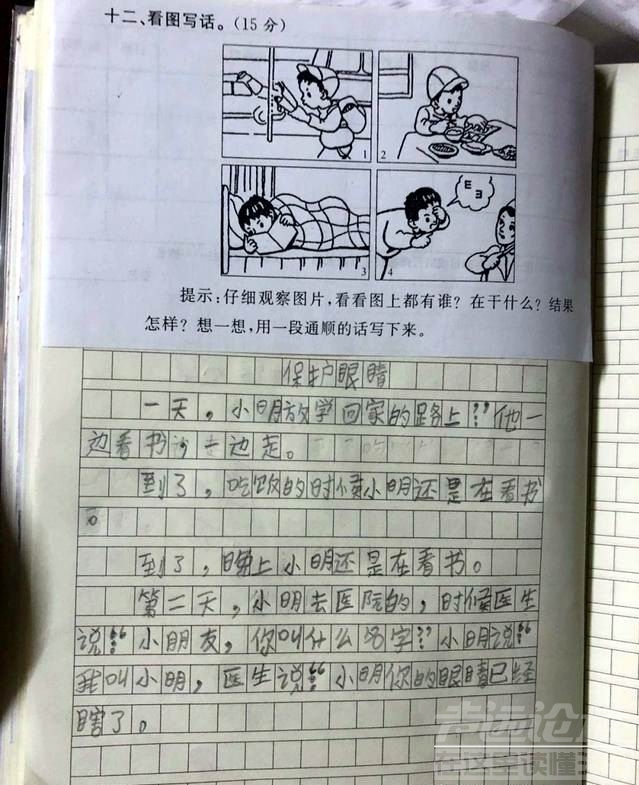 十二、看图写话。(15分)
1
2
E
ヨ
3
4
提示:仔细观察图片,看看图上都有谁?在干什么?结果
怎样?想一想,用一段通顺的话写下来。
保护眼睛
一天,小明放学回家的路上,他一
边看书,一边走。
到了,吃饭的时候小明还是在看书
。
到了,晚上小明还是在看书。
第二天,小明去医院的,时候医生
说:“小朋友,你叫什么名字?”小明说:“
我叫小明,医生说:“小明你的眼睛已经
瞎了。
在这里读懂